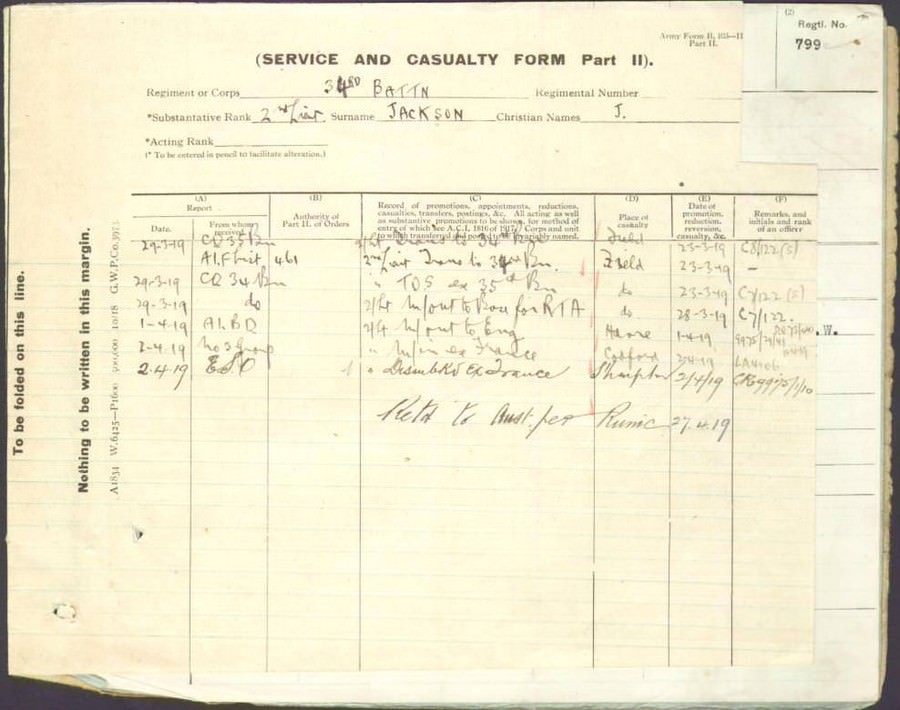 (2)
Regtl. No.
799
Army Form B. 103—II
Part II.
(SERVICE AND CASUALTY FORM Part II).
Regiment or Corps 34RD BATTN Regimental Number
*Substantative Rank 2nd Lieut. Surname JACKSON Christian Names J.
*Acting Rank
(* To be entered in pencil to facilitate alteration.)
(A) (B) (C) (D) (E) (F)
Report
Date. From whom received
Authority of Part II. of Orders
Record of promotions, appointments, reductions, casualties, transfers, postings, &c. All acting as well as substantive promotions to be shown, for method of entry of which see A.C.I. 1816 of 1917. Corps and unit to which transferred and posted invariably named.
Place of casualty
Date of promotion, reduction, reversion, casualty, &c.
Remarks, and initials and rank of an officer
29-3-19 CO 35 Bn Trans to 34th Field 23-3-19 C8/122 (S)
461 2nd Lieut Trans to 34th Bn. Field 23-3-19 —
29-3-19 CO 34 Bn " TOS ex 35th Bn do 23-3-19 C7/122 (S)
29-3-19 do 2/Lt M/out to Bou for RTA do 28-3-19 C7/122.
1-4-19 AIBD 2/Lt M/out to Eng Havre 1-4-19
3-4-19 No 3 Group " M/in ex France Codford
2.4.19 ESO " Disembkd Ex France 2/4/19
Retd to Aust. per Runic 27.4.19
.W.
To be folded on this line.
Nothing to be written in this margin.
A1834 W.6425—P1600 500,000 10/18 G.W.P.Co.3973